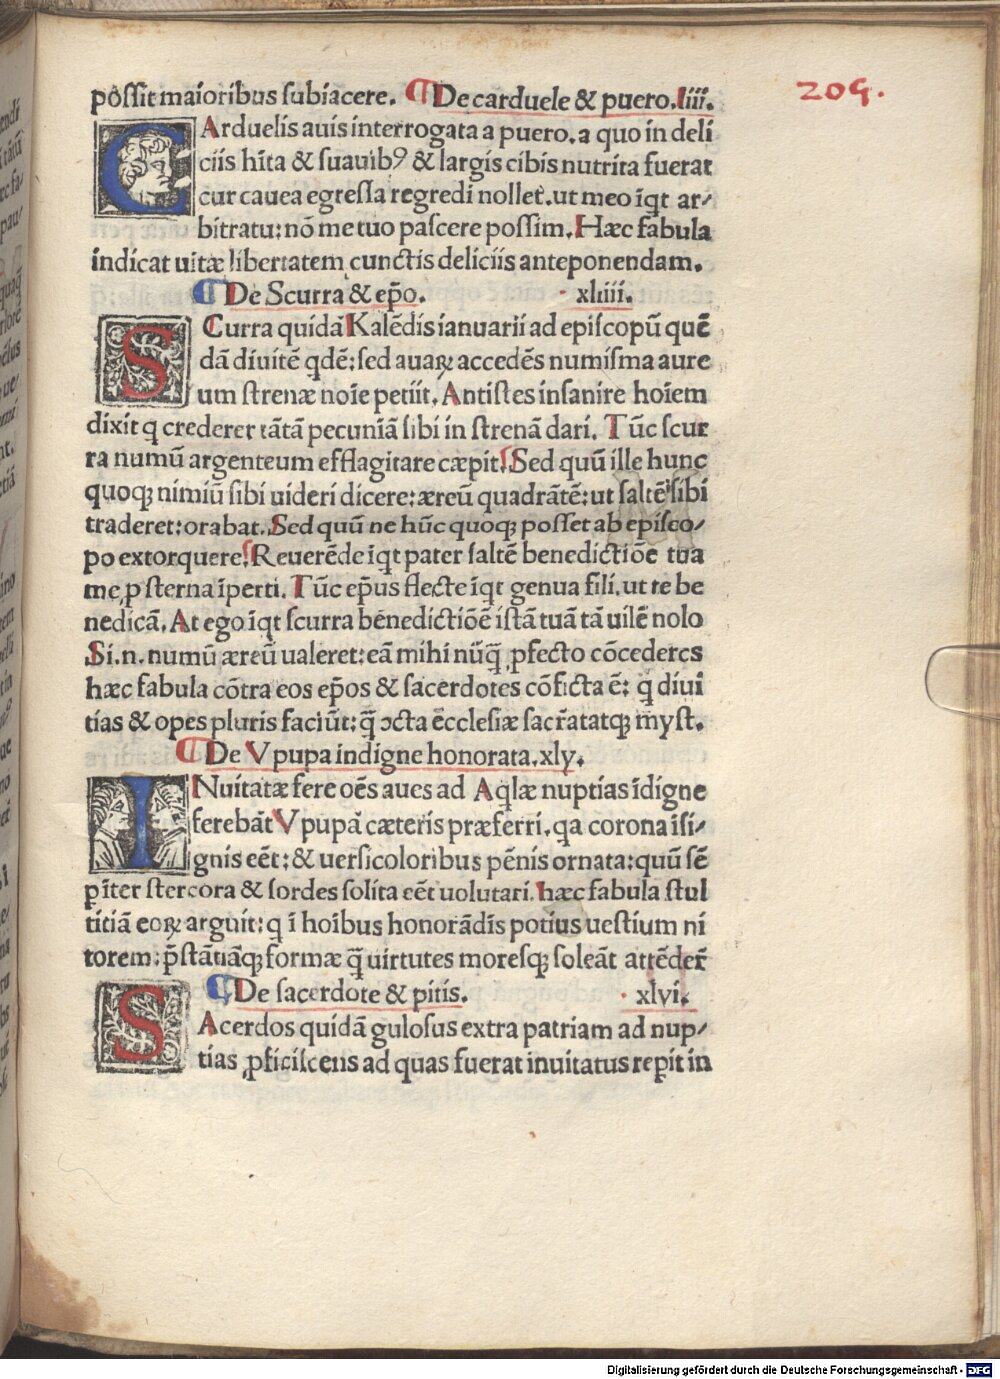 possit maioribus subiacere. ¶ De carduele & puero. liii.
209.
CArduelis auis interrogata a puero. a quo in deli
ciis hīta & suauibꝰ & largis cibis nutrita fuerat
cur cauea egressa regredi nollet. ut meo īqt ar⸗
bitratu: nō me tuo pascere possim. Hæc fabula
indicat uitæ libertatem cunctis deliciis anteponendam.
¶ De Scurra & ep̄o. xliiii.
SCurra quidā Kalēdis ianuarii ad episcopū quē
dā diuitē qdē: sed auaꝝ accedēs numisma aure
um strenæ noīe petiit. Antistes insanire hoīem
dixit q crederet tātā pecuniā sibi in strenā dari. Tūc scur
ra numū argenteum efflagitare cæpit. Sed quū ille hunc
quoqꝫ nimiū sibi uideri dicere: æreū quadrātē: ut saltē sibi
traderet: orabat. Sed quū ne hūc quoqꝫ posset ab episco⸗
po extorquere. Reuerēde īqt pater saltē benedictiōe tua
me ꝓsterna īperti. Tūc ep̄us flecte īqt genua fili. ut te be
nedicā. At ego īqt scurra benedictiōē istā tuā tā uilē nolo
Si .n. numū æreū ualeret: eā mihi nūq̄ ꝓfecto cōcederes
hæc fabula cōtra eos ep̄os & sacerdotes cōficta ē: q diui
tias & opes pluris faciūt: q̄ ɔcta ecclesiæ sacr̄atatqꝫ myst.
¶ De Vpupa indigne honorata. xly.
INuitatæ fere oēs aues ad Aqlæ nuptias īdigne
ferebāt Vpupā cæteris præferri. qa corona īsi⸗
gnis eēt: & uersicoloribus pēnis ornata: quū sē
p̄īter stercora & sordes solita eēt uolutari. hæc fabula stul
titiā eoꝝ arguit: q ī hoībus honorādīs potius uestium ni
torem: p̄stātiāqꝫ formæ q̄ uirtutes moresqꝫ soleāt attēder̄
¶ De sacerdote & pitis. xlvi.
SAcerdos quidā gulosus extra patriam ad nup⸗
tias ꝓficiscens ad quas fuerat inuitatus rep̄it in
Digitalisierung gefördert durch die Deutsche Forschungsgemeinschaft - DFG